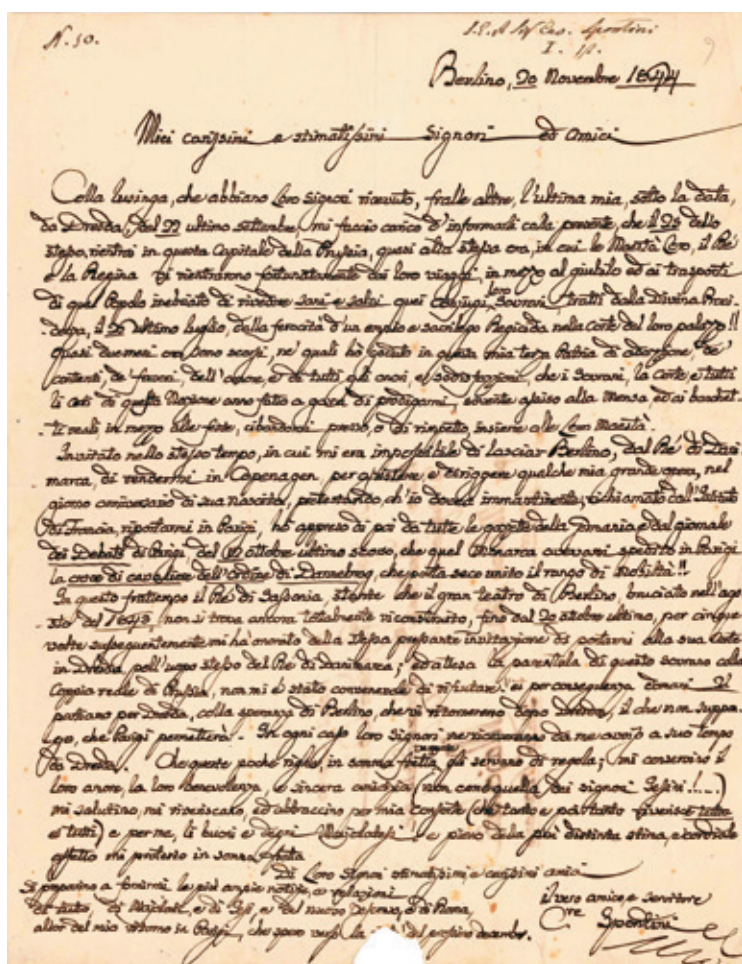 N. 50.
Spontini
Berlino, 20 Novembre 1844
Miei carissimi e stimatissimi Signori ed Amici
Colla lusinga, che abbiano Loro Signori ricevuto, fralle altre, l'ultima mia, sotto la data,
da Dresda, del 22 ultimo settembre, mi faccio carico d'informarli colla presente, che il 25 dello
stesso, rientrai in questa Capitale della Prussia, quasi alla stessa ora, in cui le Maestà Loro, il Rè
e la Regina vi rientrarono fortunatamente dai loro viaggi, in mezzo al giubilo ed ai trasporti
di quel Popolo inebriato di rivedere sani e salvi quei conjugi loro Sovrani, tratti dalla Divina Provi-
-denza, il ultimo luglio, dalla ferocità d'un empio e sacrilego Regicida nella Corte del loro palazzo!!
Quasi due mesi ora sono scorsi, ne' quali hò goduto in questa mia terza Patria di adozzione, de'
contenti, de' favori, dell'amore, e di tutti gli onori, e soddisfazioni, che i Sovrani, la Corte, e tutti
li ceti di questa Nazione anno fatto a gara di prodigarmi, sovente assiso alla Mensa ed ai banchet-
-ti reali in mezzo alle feste, presso, o di rimpetto, insieme alle Loro Maestà.
Invitato nello stesso tempo, in cui mi era impossibile di lasciar Berlino, dal Rè di Dani-
marca, di rendermi in Copenagen, per assistere, e diriggere qualche mia grande opera, nel
giorno anniversario di sua nascita, protestando, ch'io dovea immantinente, richiamato dall'Istituto
di Francia, riportarmi in Parigi, hò appreso di poi da tutte le gazzette della Germania e dal giornale
dei Debats di Parigi del ottobre ultimo scorso, che quel Monarca avevami spedito in Parigi
la croce di cavaliere dell'Ordine di Dannebrog, che porta seco unito il rango di Nobiltà!!
In questo frattempo il Rè di Sassonia, stante che il gran teatro di Berlino, bruciato nell'ago
sto del 1843, non si trova ancora totalmente ricostruito, fino dal 20 ottobre ultimo, per cinque
volte susseguentemente mi ha onorato della stessa pressante invitazione di portarmi alla sua Corte
in Dresda pell'uopo stesso del Rè di Danimarca; ed attesa la parentela di questo sovrano colla
Coppia reale di Prussia, non mi è stato convenevole di rifiutare: e per conseguenza domani 21
partiamo per Dresda, colla speranza di Berlino, che vi ritorneremo dopo Dresda, il che non suppon-
go, che Parigi permetterà. In ogni caso loro Signori ne riceveranno da me avviso a suo tempo
da Dresda. Che queste poche righe, in somma fretta, gli servano di regola; mi conservino il
loro amore, la lor benevolenza, e sincera amicizia (non quella dei signori Jesini!....)
mi salutino, mi riveriscano, ed abbraccino per mia Consorte (che tanto e poi tanto riverisce tutte
e tutti) e per me, li buoni e degni Majolatesi: e pieno della più distinta stima, e cordiale
affetto mi protesto in somma fretta
Di Loro Signori stimatissimi, e carissimi amici
Si preparino a fornirmi le più ampie notizie, e relazioni
di tutto, di Majolati, e di Jesi, e del nuovo Vescovo, e di Roma,
allor del mio ritorno in Parigi, che spero verso la del prossimo decembre.
il vero amico, e servitore
Spontini